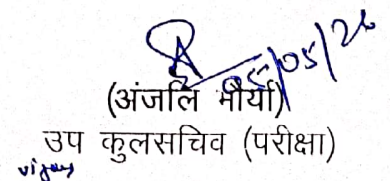 05/05/26
(अंजलि मौर्या)
उप कुलसचिव (परीक्षा)
vijay